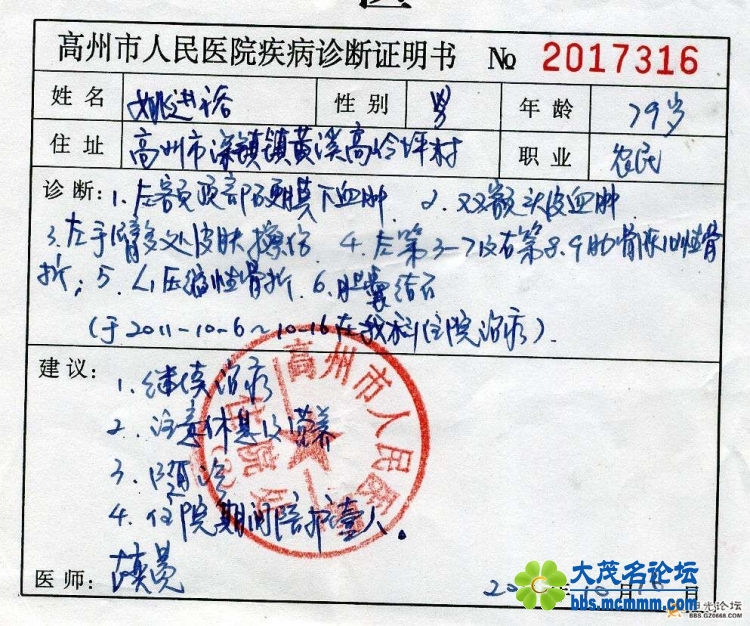 高州市人民医院疾病诊断证明书 № 2017316
姓名 姚进裕 性别 男 年龄 79岁
住址 高州市深镇镇黄溪高岭坪村 职业 农民
诊断：1.左额颞部硬膜下血肿 2.双额头皮血肿
3.左手臂多处皮肤擦伤 4.左第3-7及右第8.9肋骨陈旧性骨
折；5.L1压缩性骨折 6.胆囊结石
（于2011-10-6～10-16在我科住院治疗）.
建议：1.继续治疗
2.注意休息及营养
3.随诊
4.住院期间陪护壹人。
高州市人民医院
医师：
年10月16日
大茂名论坛
bbs.mcmmm.com
阳光论坛
BBS.GZ0668.COM